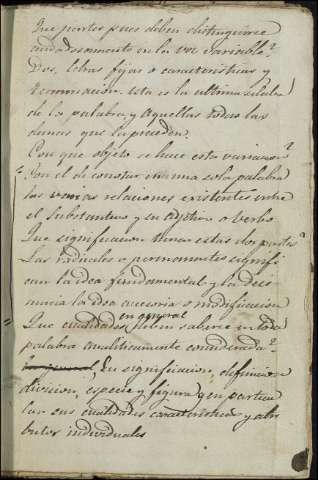 Que partes pues deben distinguirse
cuidadosamente en la voz variable?
Dos, letras fijas o caracteristicas y
terminacion. esta es la ultima silaba
de la palabra, y aquellas todas las
demas que la preceden.
Con que objeto se hace esta variacion?
Con el de constar en una sola palabra
las varias relaciones existentes entre
el Substantivo y su adjetivo o verbo
Que significacion tienen estas dos partes?
Las radicales o permanentes signifi
can la idea fundamental y la des
nuncia la idea acesoria o modificacion
en general
Que cualidades deben saberse en toda
palabra analiticamente considerada?
En general, Su significacion, difinicion
division, especie y figura y en particu
lar sus cualidades caracteristicas y atri
butos individuales